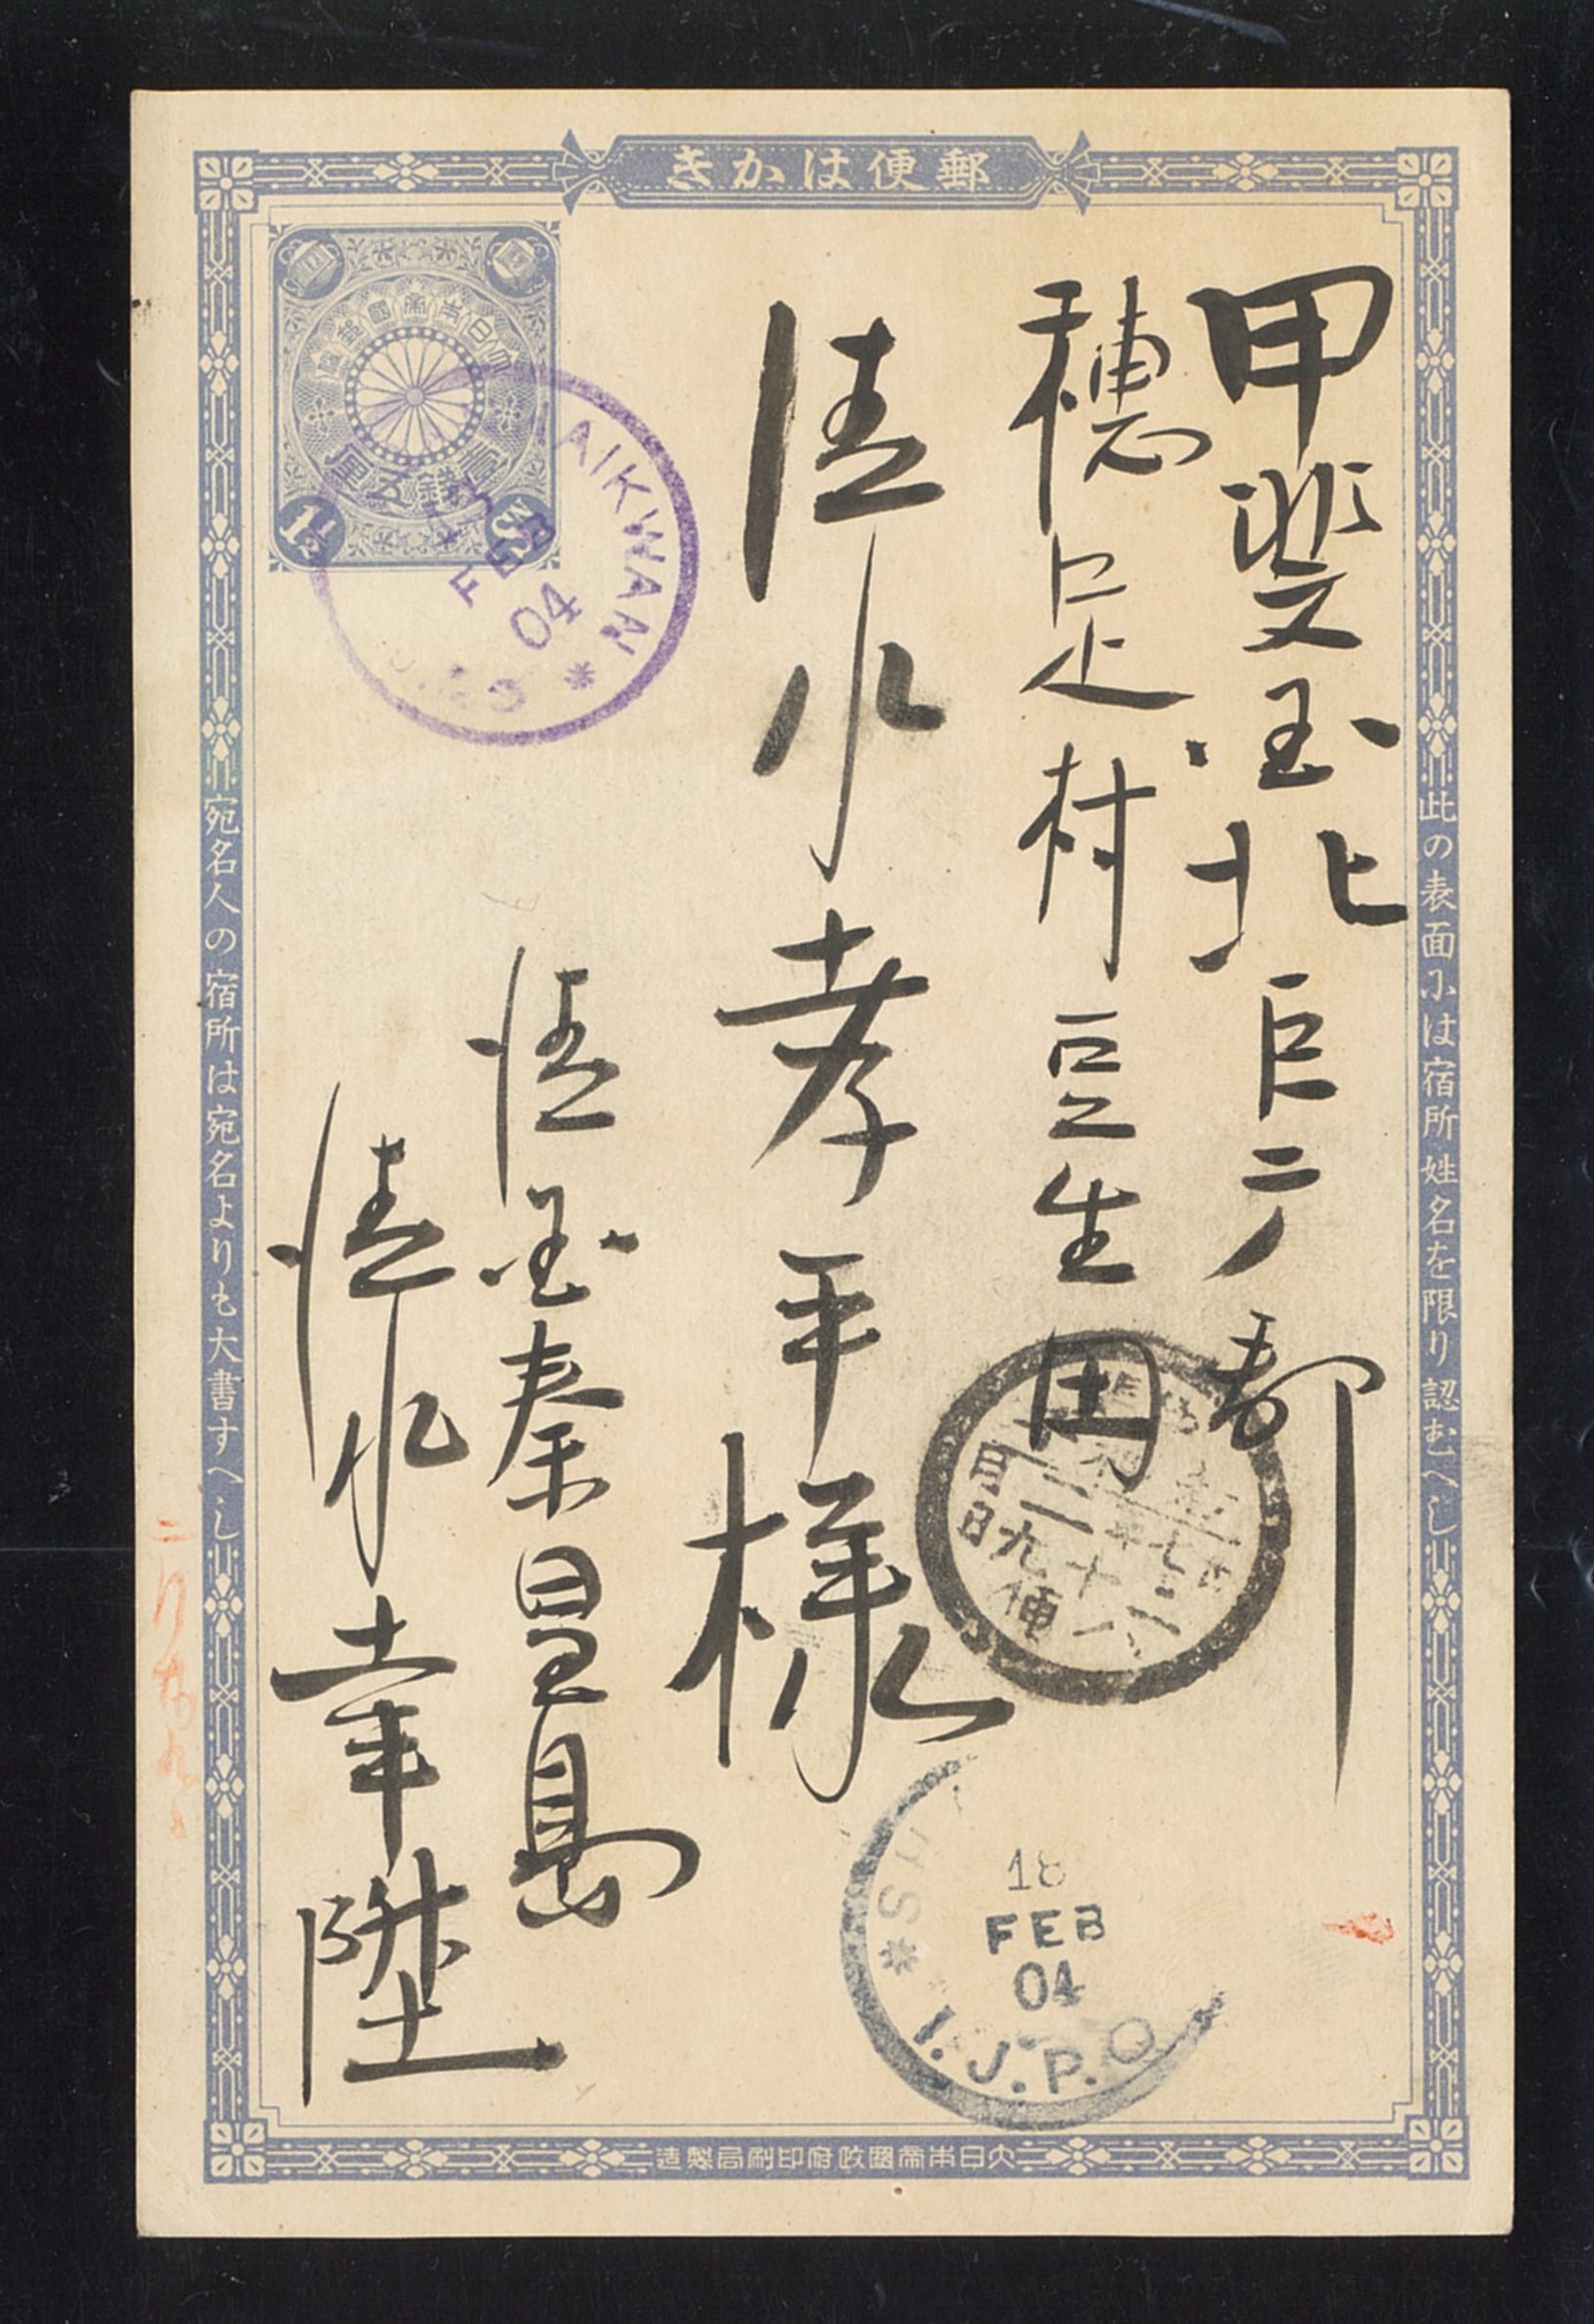 郵便はかき
此の表面には宿所姓名を限り認むへし
甲斐国北巨广ノ郡
穂足村豆生田
清水孝平様
清国秦皇島
清水幸陸
宛名人の宿所は宛名よりも大書すへし
大日本帝國郵便
壹錢五厘
1½ SN
AIKWAN
FEB
04
二月
九便
18
FEB
04
I.J.P.O
大日本帝國政府印刷局製造